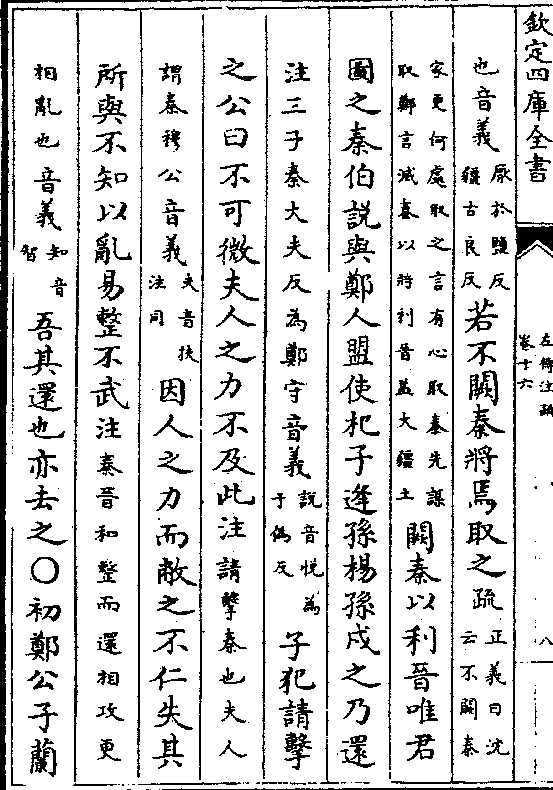 欽定四庫全書
左傳注疏
卷十六
八
也音義厭於鹽反疆古良反若不闕秦將焉取之疏正義曰沈云不闕秦
家更何處取之言有心取秦先謀取鄭言滅秦以將利晉益大疆土闕秦以利晉唯君
圖之秦伯說與鄭人盟使杞子逢孫楊孫戍之乃還
注三子秦大夫反為鄭守音義說音悅為于偽反子犯請擊
之公曰不可微夫人之力不及此注請擊秦也夫人
謂秦穆公音義夫音扶注同因人之力而敝之不仁失其
所與不知以亂易整不武注秦晉和整而還相攻更
相亂也音義知音智吾其還也亦去之○初鄭公子蘭